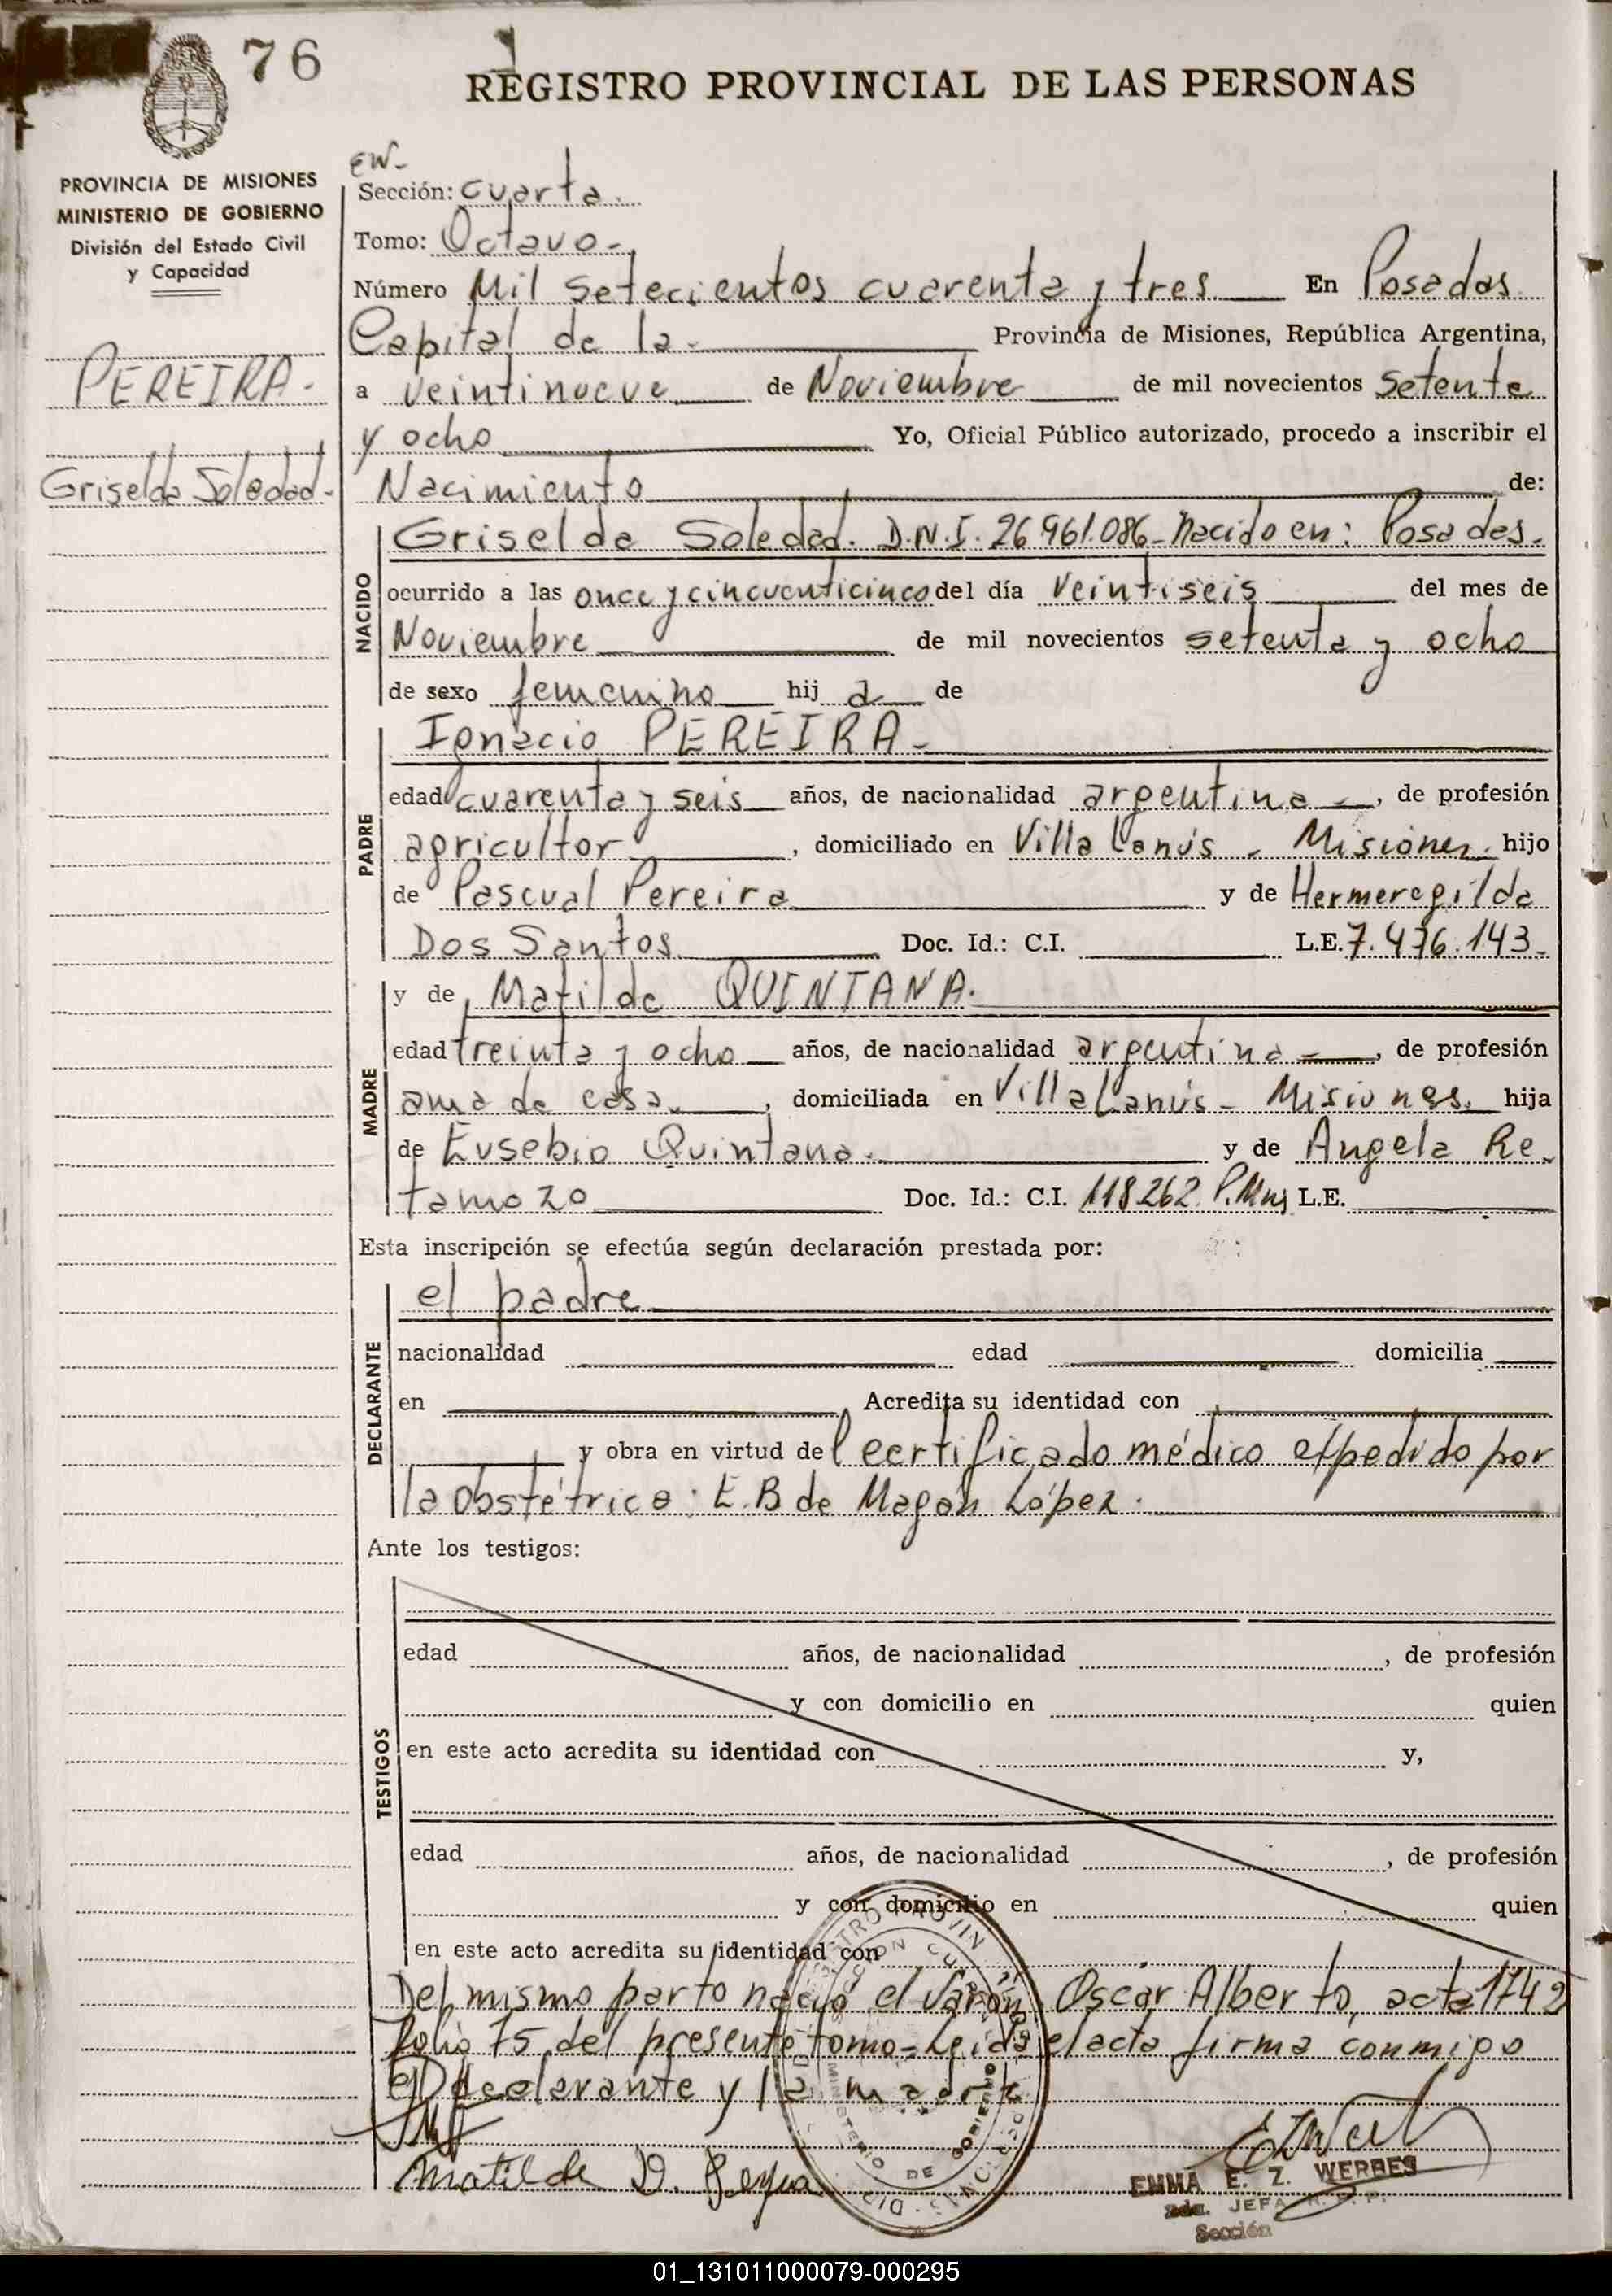 76
REGISTRO PROVINCIAL DE LAS PERSONAS
PROVINCIA DE MISIONES
MINISTERIO DE GOBIERNO
División del Estado Civil
y Capacidad
PEREIRA.
Griselda Soledad.
EW-
Sección: cuarta.
Tomo: Octavo-
Número Mil setecientos cuarenta y tres En Posadas
Capital de la. Provincia de Misiones, República Argentina,
a veintinueve de Noviembre de mil novecientos setenta
y ocho Yo, Oficial Público autorizado, procedo a inscribir el
Nacimiento de:
NACIDO
Griselda Soledad. D.N.I. 26.961.086- Nacido en: Posadas.
ocurrido a las once y cincuenticinco del día veintiseis del mes de
Noviembre de mil novecientos setenta y ocho
de sexo femenino hij a de
PADRE
Ignacio PEREIRA-
edad cuarenta y seis años, de nacionalidad argentina, de profesión
agricultor, domiciliado en Villa Lanús - Misiones. hijo
de Pascual Pereira y de Hermeregilda
Dos Santos Doc. Id.: C.I. L.E. 7.476.143-
MADRE
y de Matilde QUINTANA.
edad treinta y ocho años, de nacionalidad argentina, de profesión
ama de casa, domiciliada en Villa Lanús - Misiones. hija
de Eusebio Quintana. y de Angela Re-
tamozo Doc. Id.: C.I. 118262 P.Mns L.E.
Esta inscripción se efectúa según declaración prestada por:
DECLARANTE
el padre
nacionalidad edad domicilia
en Acredita su identidad con
y obra en virtud del certificado médico expedido por
la obstétrica: E.B de Magán López.
Ante los testigos:
TESTIGOS
edad años, de nacionalidad, de profesión
y con domicilio en quien
en este acto acredita su identidad con y,
edad años, de nacionalidad, de profesión
y con domicilio en quien
en este acto acredita su identidad con
Del mismo parto nació el varón Oscar Alberto, acta 1742
folio 75 del presente tomo- Leída el acta firma conmigo
el Declarante y la madre
Matilde
EMMA E. Z. WERBES
2da. JEFA R. P. P.
Sección
MINISTERIO DE GOBIERNO
01_131011000079-000295